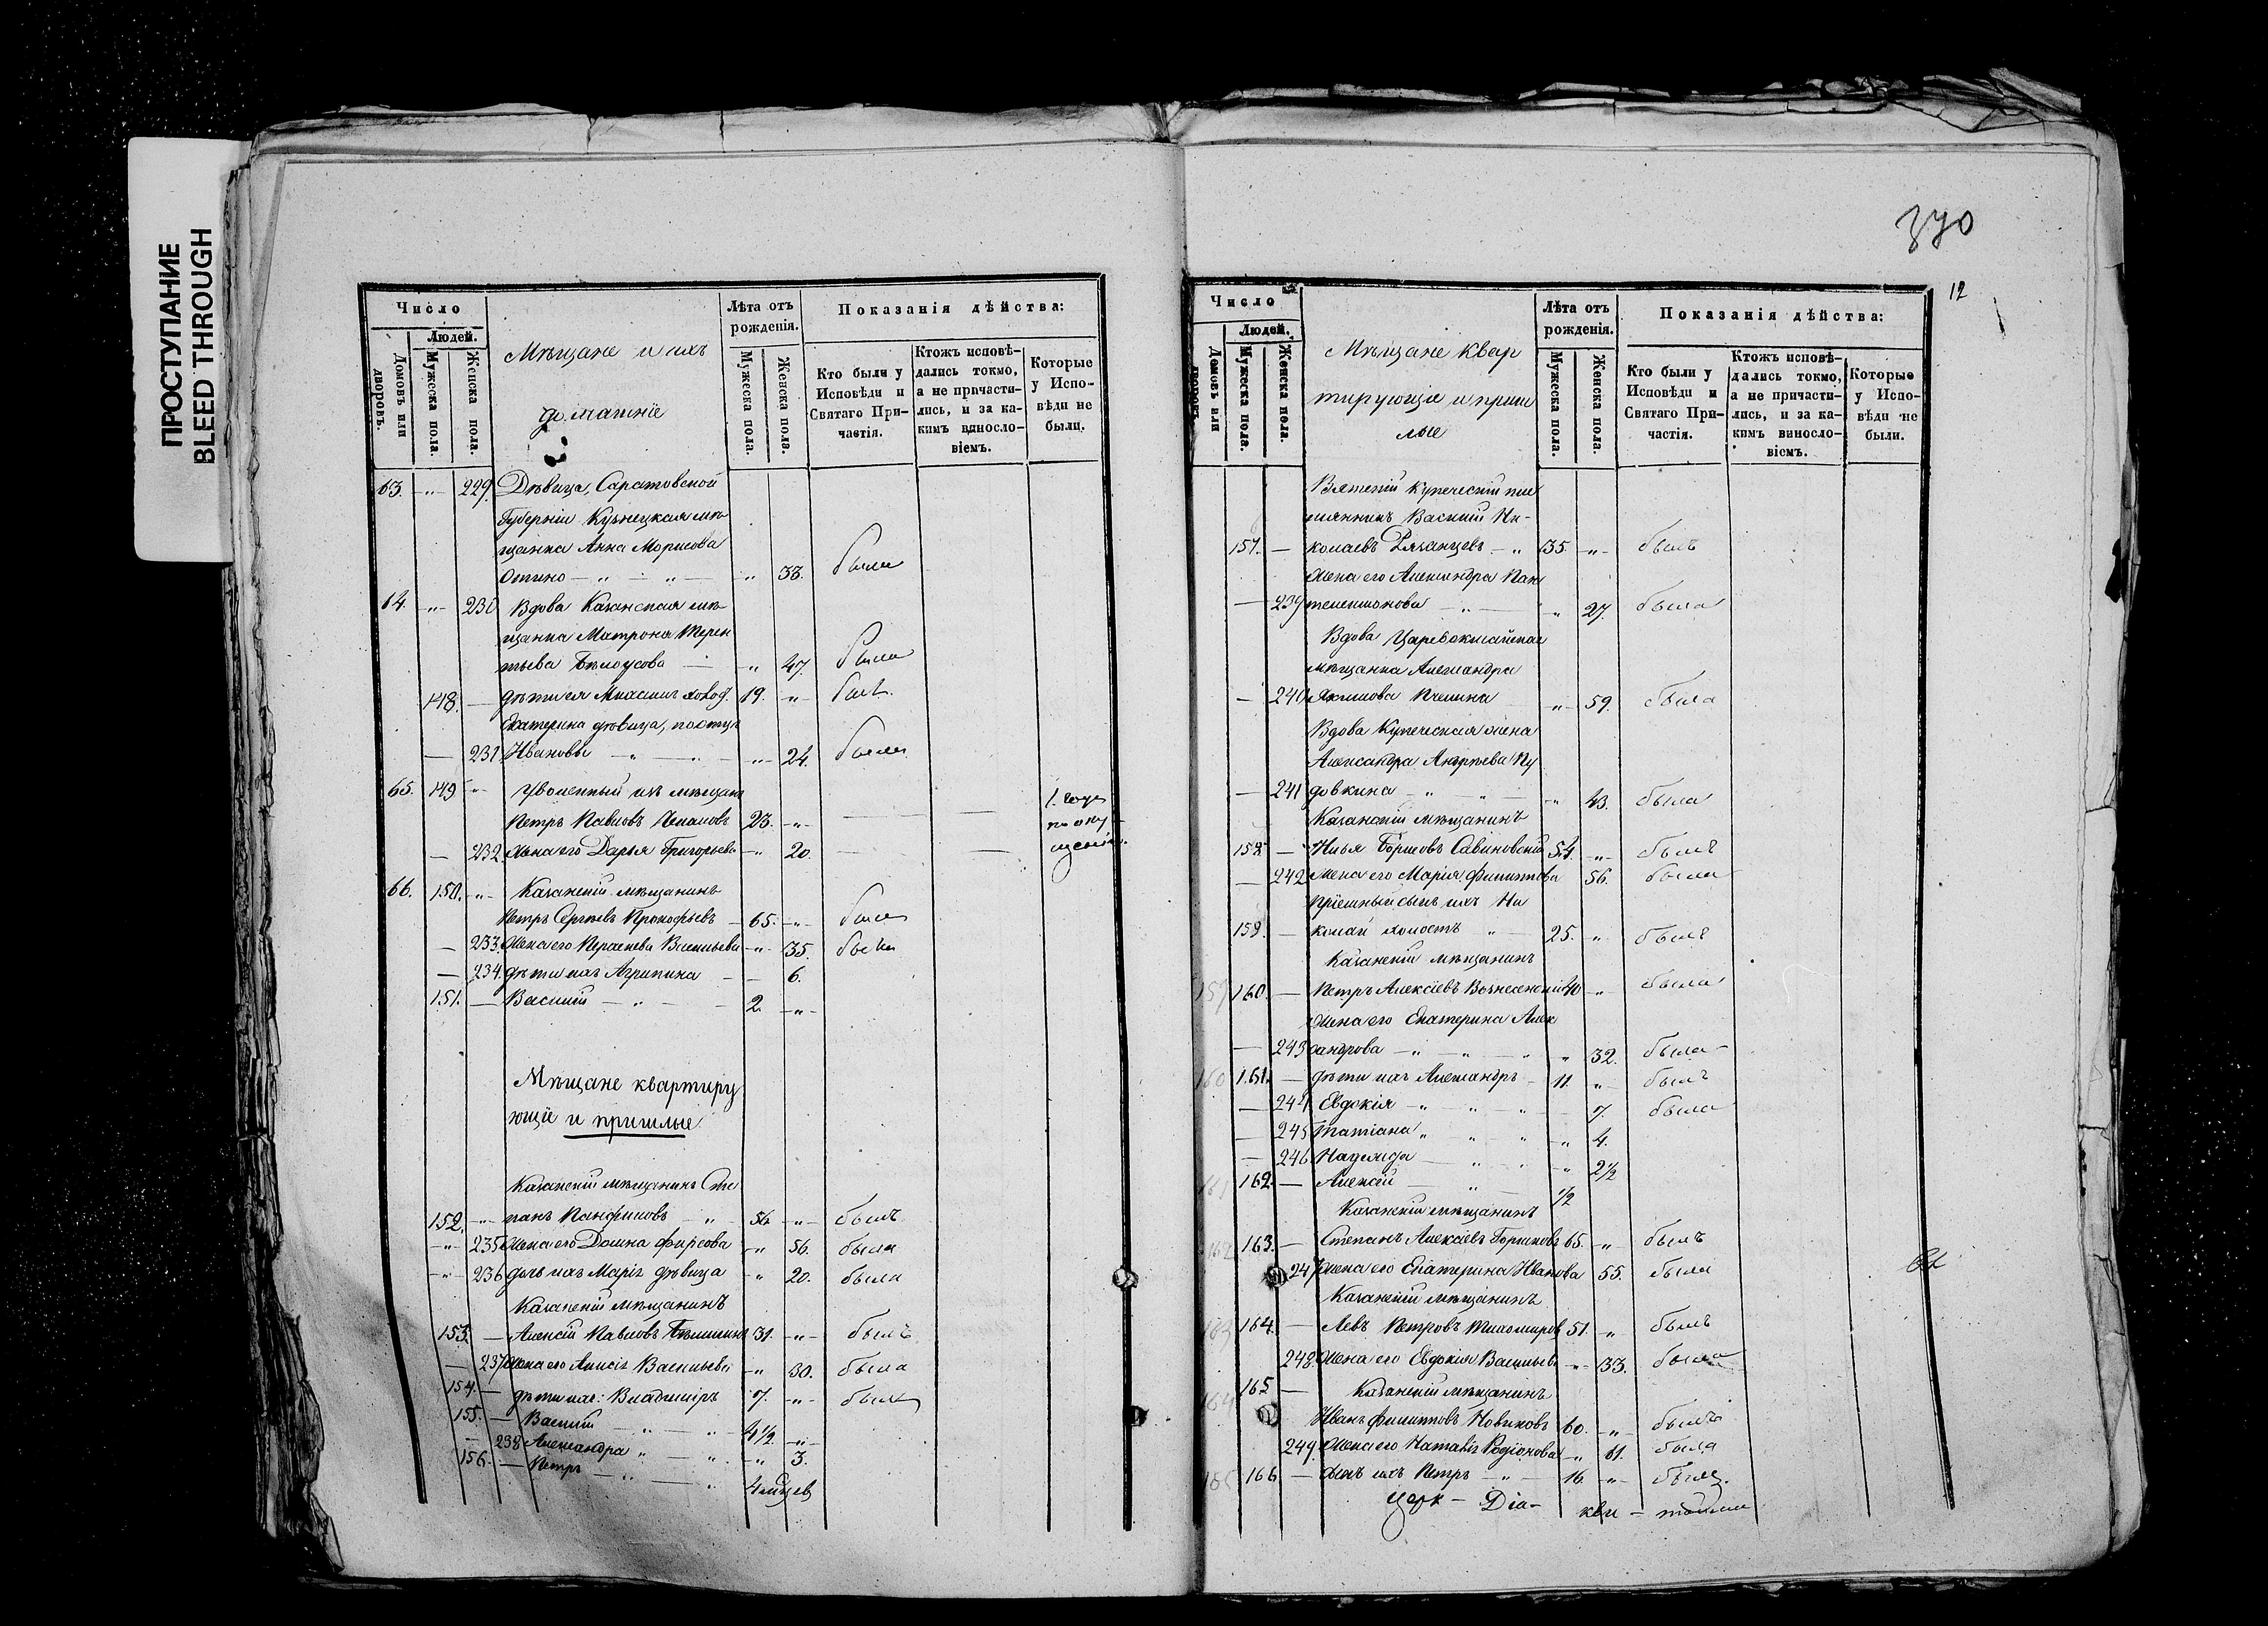 ПРОСТУПАНИЕ
BLEED THROUGH
Число
Людей.
Домовъ или дворовъ.
Мужеска пола.
Женска пола.
Мѣщане и ихъ
домашніе
Лѣта отъ рожденія.
Мужеска пола.
Женска пола.
Показанія дѣйства:
Кто были у Исповѣди и Святаго Причастія.
Ктожъ исповѣдались токмо, а не причастились, и за какимъ винословіемъ.
Которые у Исповѣди не были.
63. -„- 229. Дѣвица, Саратовской
Губерніи Кузнецкая мѣ-
щанка Анна Морисова
-„- 33. была
14. -„- 230 Вдова Казанская мѣ-
щанка Матрона Терен
тьева Бѣлоусова — -„ 47. была
148. — дѣти ея 19. -„- былъ.
Екатерина дѣвица, по отцу
— 231 Ивановы -„- 24. была
65. 149 -„- Уволенный изъ мѣщанъ
Петръ Павловъ 23. -„-
— 232. Жена его Дарья Григорьева -„ 20.
66. 150. -„- Казанскій мѣщанинъ
Петръ Сергѣевъ Прокофьевъ 65. -„- былъ
— 233. Жена его Васильева -„- 35. была
— 234. дѣти ихъ Агрипина — 6.
151. — Василій 2. -„-
Мѣщане квартиру
ющіе и пришлые
Казанскій мѣщанинъ Сте
152. -„- панъ Панфиловъ 56 -„- былъ.
-„- 235 Жена его Домна Фирсова -„ 56. была
-„- 236 дочь ихъ Марія дѣвица -„ 20. была
Казанскій мѣщанинъ
153. — Алексій Павловъ 31. -„- былъ
— 237 Жена его Анисія Васильева -„ 30. была
154. — дѣти ихъ: Владиміръ 7. -„- былъ
155. — Василій 4½. -„-
— 238 Александра -„ 3.
156. — Петръ 4 мѣсяцев
370
12
Число
Людей.
Домовъ или дворовъ.
Мужеска пола.
Женска пола.
Мѣщане квар
тирующіе и приш
лые
Лѣта отъ рожденія.
Мужеска пола.
Женска пола.
Показанія дѣйства:
Кто были у Исповѣди и Святаго Причастія.
Ктожъ исповѣдались токмо, а не причастились, и за какимъ винословіемъ.
Которые у Исповѣди не были.
Вятскій купеческій пле
мянникъ Василій Ни-
157. — колаевъ Рязанцевъ 35. -„- былъ
Жена его Александра Пан
— 239 телеимонова „ 27. была
Вдова Царевококшайская
мѣщанка Александра
— 240 Якимова Пчелина -„- 59. была
Вдова Купеческая жена
Александра Андреева Пу
— 241 довкина „ 43. была
Казанскій мѣщанинъ
158 — Илья Борисовъ Савиновскій 54. -„- былъ
— 242 Жена его Марія Филиппова 56. была
Пріемный сынъ ихъ Ни
159. — колай холостъ 25. „ былъ
Казанскій мѣщанинъ
160. — Петръ Алексіевъ Вознесенскій 40 -„- была
Жена его Екатерина Алек
— 243 сандрова „ 32. была
161. — дѣти ихъ Александръ 11. -„- былъ
— 244 Евдокія 7. была
— 245 Татіана -„ 4.
— 246 Надежда -„ 2½
162 — Алексій ½
Казанскій мѣщанинъ
163. — Степанъ Алексіевъ Горшковъ 65. -„- былъ
247 Жена его Екатерина Иванова 55. была
Казанскій мѣщанинъ
164. — Левъ Петровъ Тихомировъ 51. „ былъ
248. Жена его Евдокія Васильева -„- 33. была
165 — Казанскій мѣщанинъ
Иванъ Филипповъ Новиковъ 60. -„- былъ
249. Жена его Наталія Родіонова „ 61. была
166. — Сынъ ихъ Петръ 16 -„- былъ.
церк — Діа-